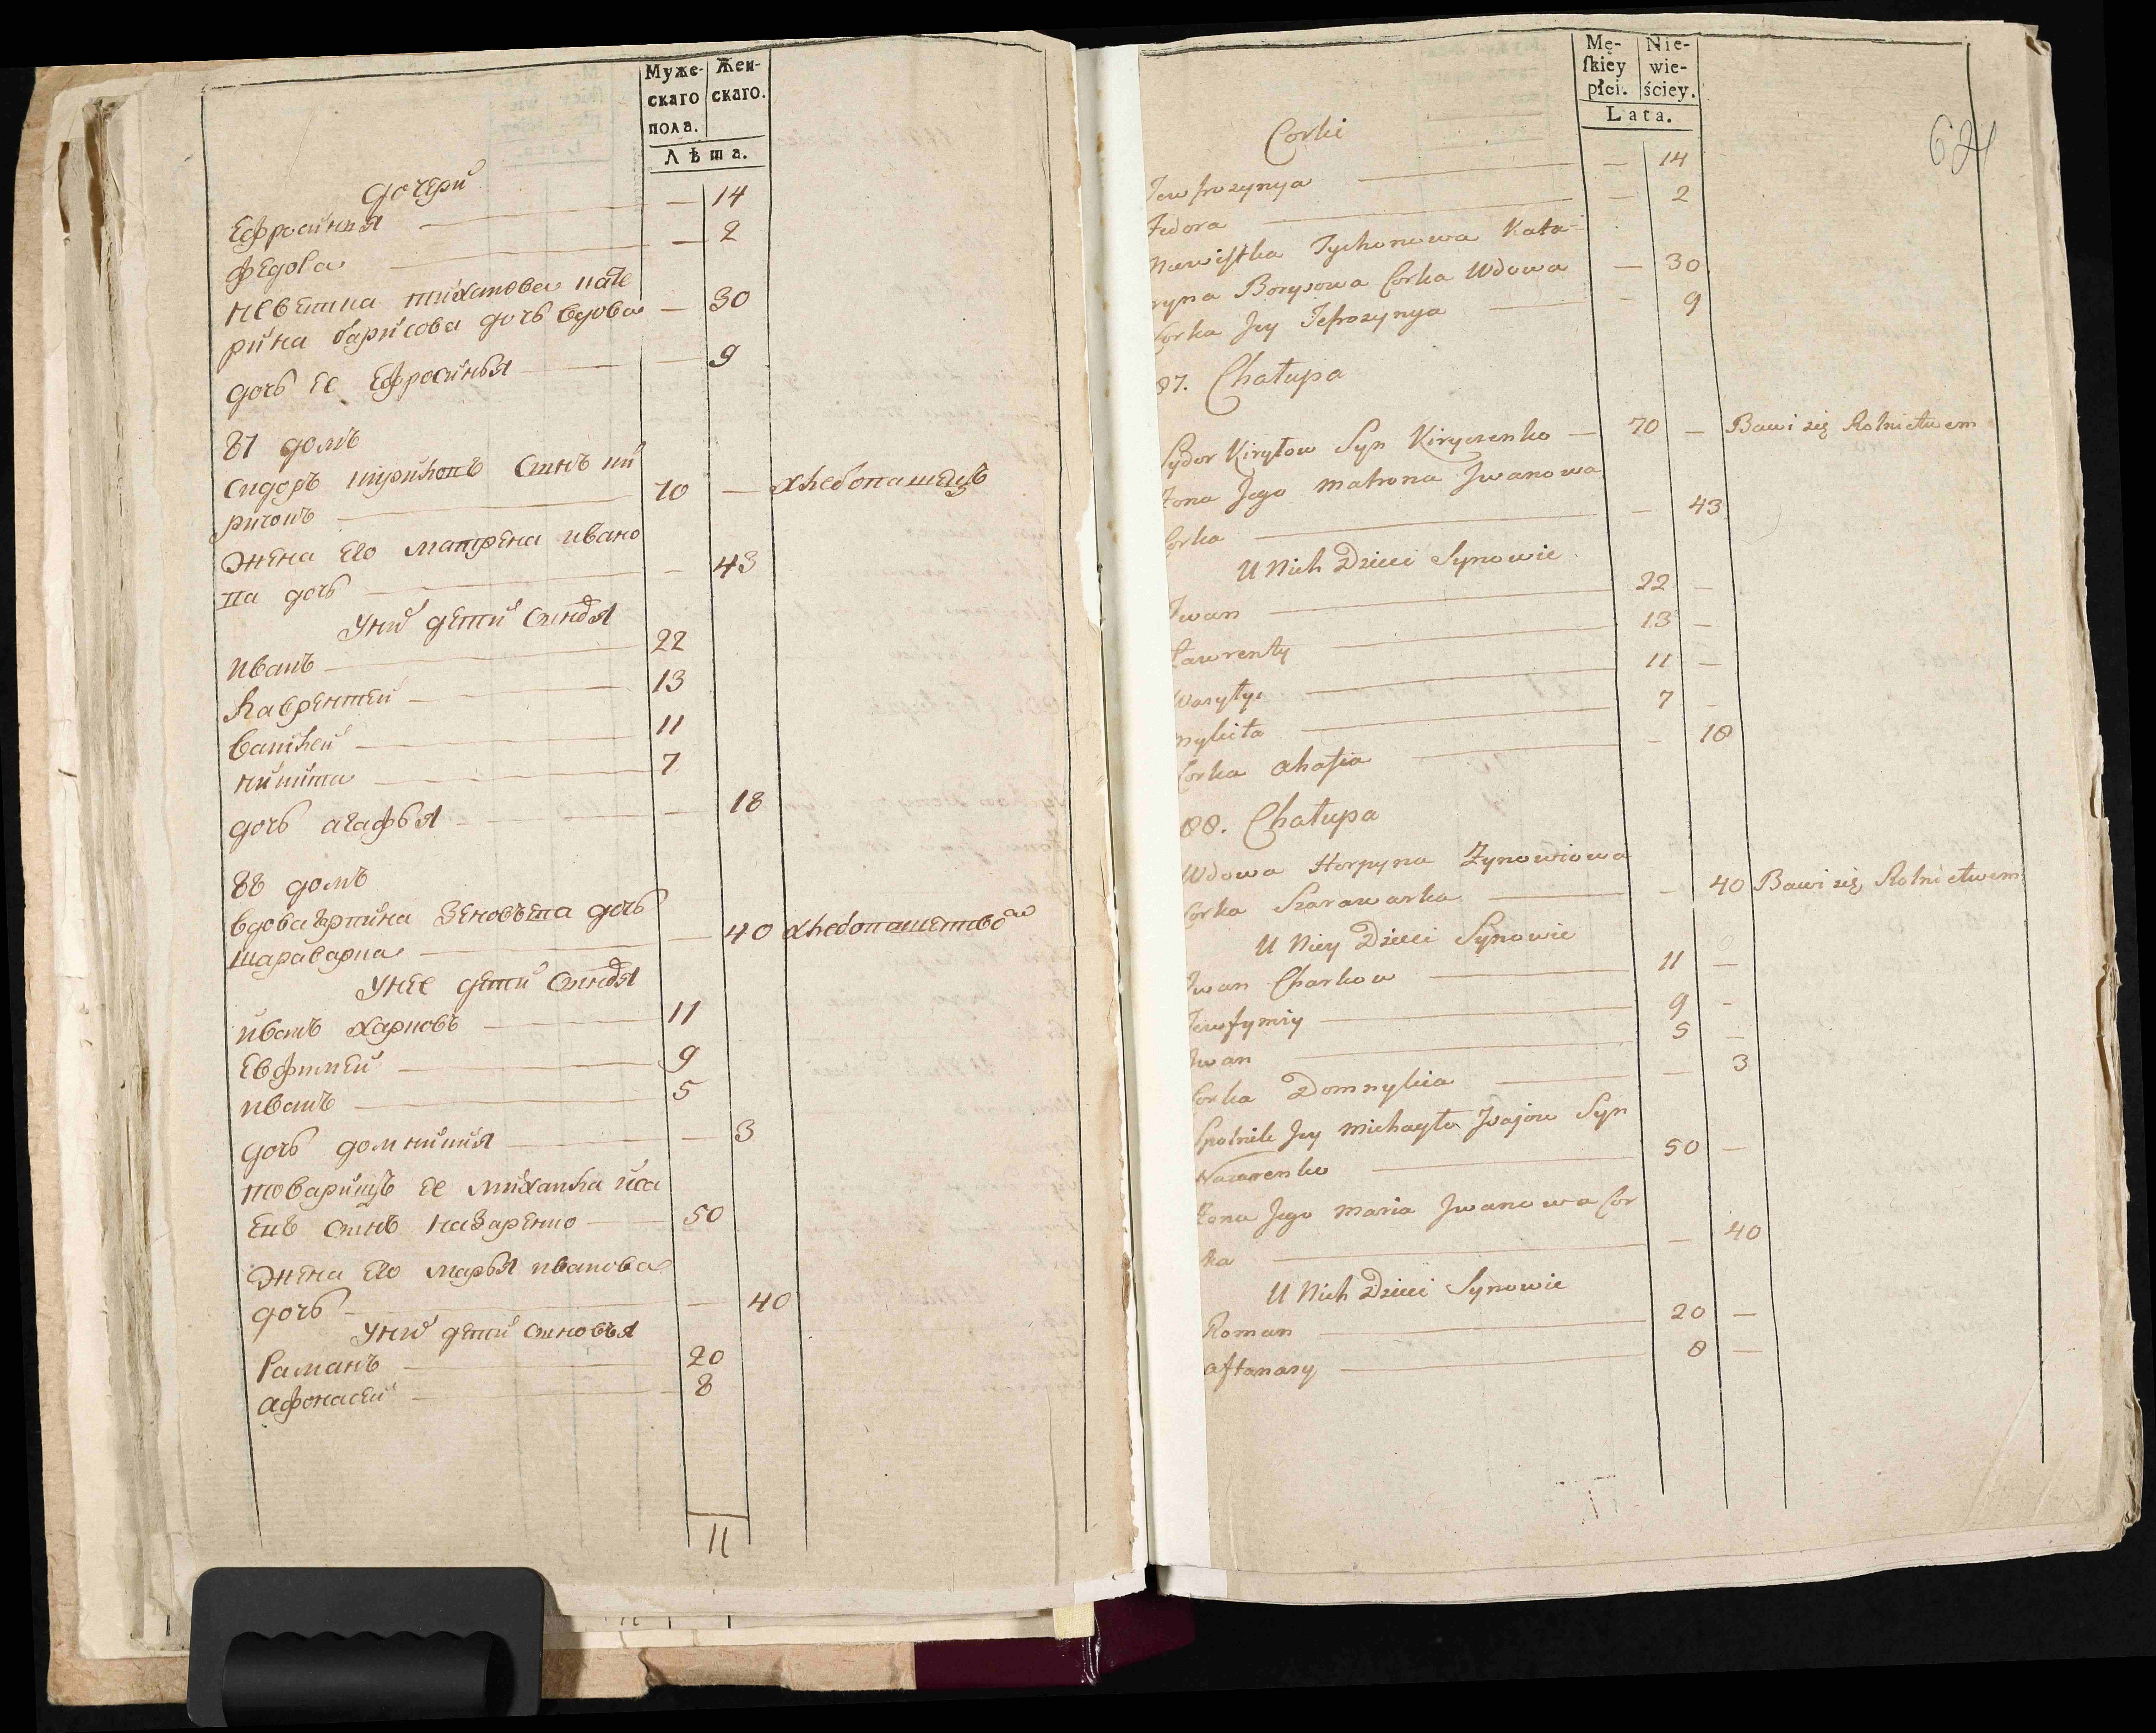 Муже-
скаго
пола.
Жен-
скаго.
Лѣта.
дочери
Ефросинья — 14
Федора — 2
невестка тихонова кате
рина барисова дочь вдова — 30
дочь ее Ефросинья — 9
87 домъ
Сидоръ кириловъ Синъ ки
70 — хлебопашецъ
Жена Его матрена ивано
ва дочь — 43
У них дети Синовя
иванъ 22
лаврентей 13
василей 11
никита 7
дочь агафья — 18
88 домъ
вдова гарпина Зеновъева дочь
шараварка — 40 хлебопашетвом
У нее дети Синовя
иванъ харковъ 11
Евфимей 9
иванъ 5
дочь домникия — 3
товарищъ ее михайла иса
евъ Синъ назаренко 50
Жена Его марья иванова
дочь — 40
У них дети Сыновъя
Раманъ 20
афонасеи 8
11
Mę-
ſkiey
płci.
Nie-
wie-
ściey.
Lata.
62
Corki
Jewfrozynya — 14
Fedora — 2
Niewiſtka Tychonowa Kata-
ryna Borysowa Corka Wdowa — 30
Corka Jey Jefrozynya — 9
87. Chałupa
Sydor Kiryłow Syn Kiryczenko — 70 — Bawi się Rolnictwem
Zona Jego Matrona Jwanowa
Corka — 43
U Nich Dzieci Synowie
Jwan 22 —
Ławrenty 13 —
Wasyłyi 11 —
Mykita 7 —
Corka Ahafia — 18
88. Chałupa
Wdowa Horpyna Zynowiowa
Corka Szarawarka — 40 Bawi się Rolnictwem
U Niey Dzieci Synowie
Jwan Charkow 11 —
Jewfymiy 9 -
Jwan 5 —
Corka Domnykia — 3
Spolnik Jey Michayło Jsajow Syn
Nazarenko 50 —
Zona Jego Maria Jwanowa Cor
ka — 40
U Nich Dzieci Synowie
Roman 20 —
Aftanazy 8 —